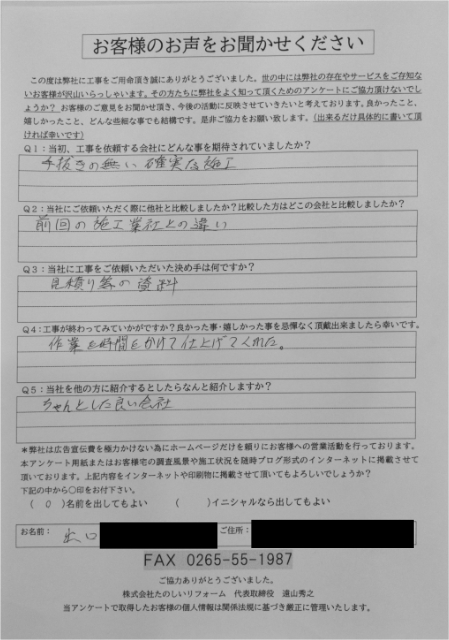 お客様のお声をお聞かせください
この度は弊社に工事をご用命頂き誠にありがとうございました。世の中には弊社の存在やサービスをご存知な
いお客様が沢山いらっしゃいます。その方たちに弊社をよく知って頂くためのアンケートにご協力頂けないでし
ょうか？ お客様のご意見をお聞かせ頂き、今後の活動に反映させていきたいと考えております。良かったこと、
嬉しかったこと、どんな些細な事でも結構です。是非ご協力をお願い致します。（出来るだけ具体的に書いて頂
ければ幸いです）
Q1：当初、工事を依頼する会社にどんな事を期待されていましたか？
手抜きの無い確実な施工
Q2：当社にご依頼いただく際に他社と比較しましたか？比較した方はどこの会社と比較しましたか？
前回の施工業社との違い
Q3：当社に工事をご依頼いただいた決め手は何ですか？
見積り等の資料
Q4：工事が終わってみていかがですか？良かった事・嬉しかった事を忌憚なく頂戴出来ましたら幸いです。
作業を時間をかけて仕上げてくれた。
Q5：当社を他の方に紹介するとしたらなんと紹介しますか？
ちゃんとした良い会社
＊弊社は広告宣伝費を極力かけない為にホームページだけを頼りにお客様への営業活動を行っております。
本アンケート用紙またはお客様宅の調査風景や施工状況を随時ブログ形式のインターネットに掲載させて
頂いております。上記内容をインターネットや印刷物に掲載させて頂いてもよろしいでしょうか？
下記の中から○印をお付下さい。
（ ○ ）名前を出してもよい （ ）イニシャルなら出してもよい
お名前： 出口 ご住所：
FAX 0265-55-1987
ご協力ありがとうございました。
株式会社たのしいリフォーム 代表取締役 遠山秀之
当アンケートで取得したお客様の個人情報は関係法規に基づき厳正に管理いたします。